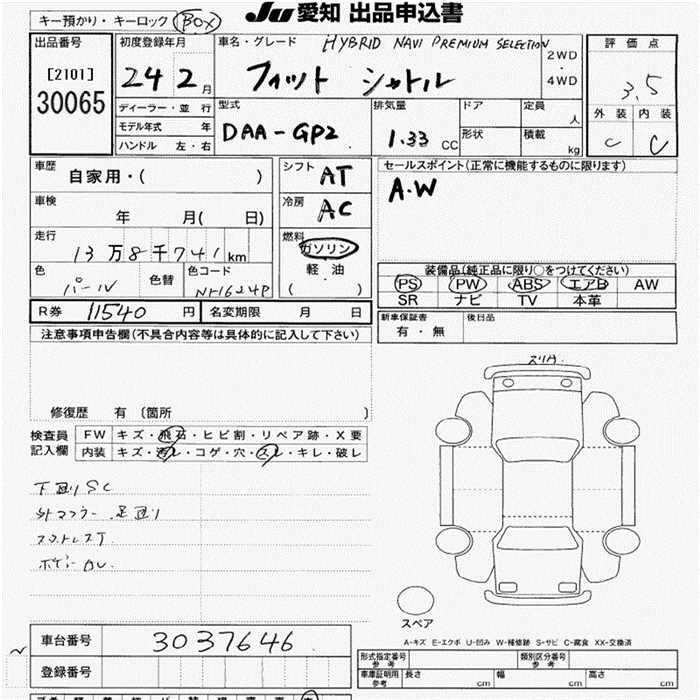 キー預かり・キーロック BOX
JU 愛知 出品申込書
出品番号
[2101]
30065
初度登録年月
24 2月
ディーラー・並行
モデル年式 年
ハンドル 左・右
車名・グレード HYBRID NAVI PREMIUM SELECTION
フィット シャトル
2WD
・
4WD
型式
DAA-GP2
排気量
1.33 CC
ドア
形状
定員
人
積載
kg
評価点
3.5
外装 内装
C C
車歴
自家用・( )
車検
年 月( 日)
走行
13万8千741km
色
パール
色替
色コード
NH624P
シフト
AT
冷房
AC
燃料
ガソリン
軽油
( )
セールスポイント(正常に機能するものに限ります)
A.W
装備品(純正品に限り○をつけてください)
PS PW ABS エアB AW
SR ナビ TV 本革
R券 11540 円
名変期限 月 日
新車保証書
有・無
後日品
注意事項申告欄(不具合内容等は具体的に記入して下さい)
修復歴 有 〔箇所 〕
検査員
記入欄
FW キズ・飛石・ヒビ割・リペア跡・X要
内装 キズ・汚レ・コゲ・穴・スレ・キレ・破レ
下回りSC
外マフラー 足回り
スペア
A-キズ E-エクボ U-凹み W-補修跡 S-サビ C-腐食 XX-交換済
車台番号 3037646
登録番号
形式指定番号
参考
類別区分番号
参考
車庫証明用
参考
長さ cm
幅 cm
高さ cm